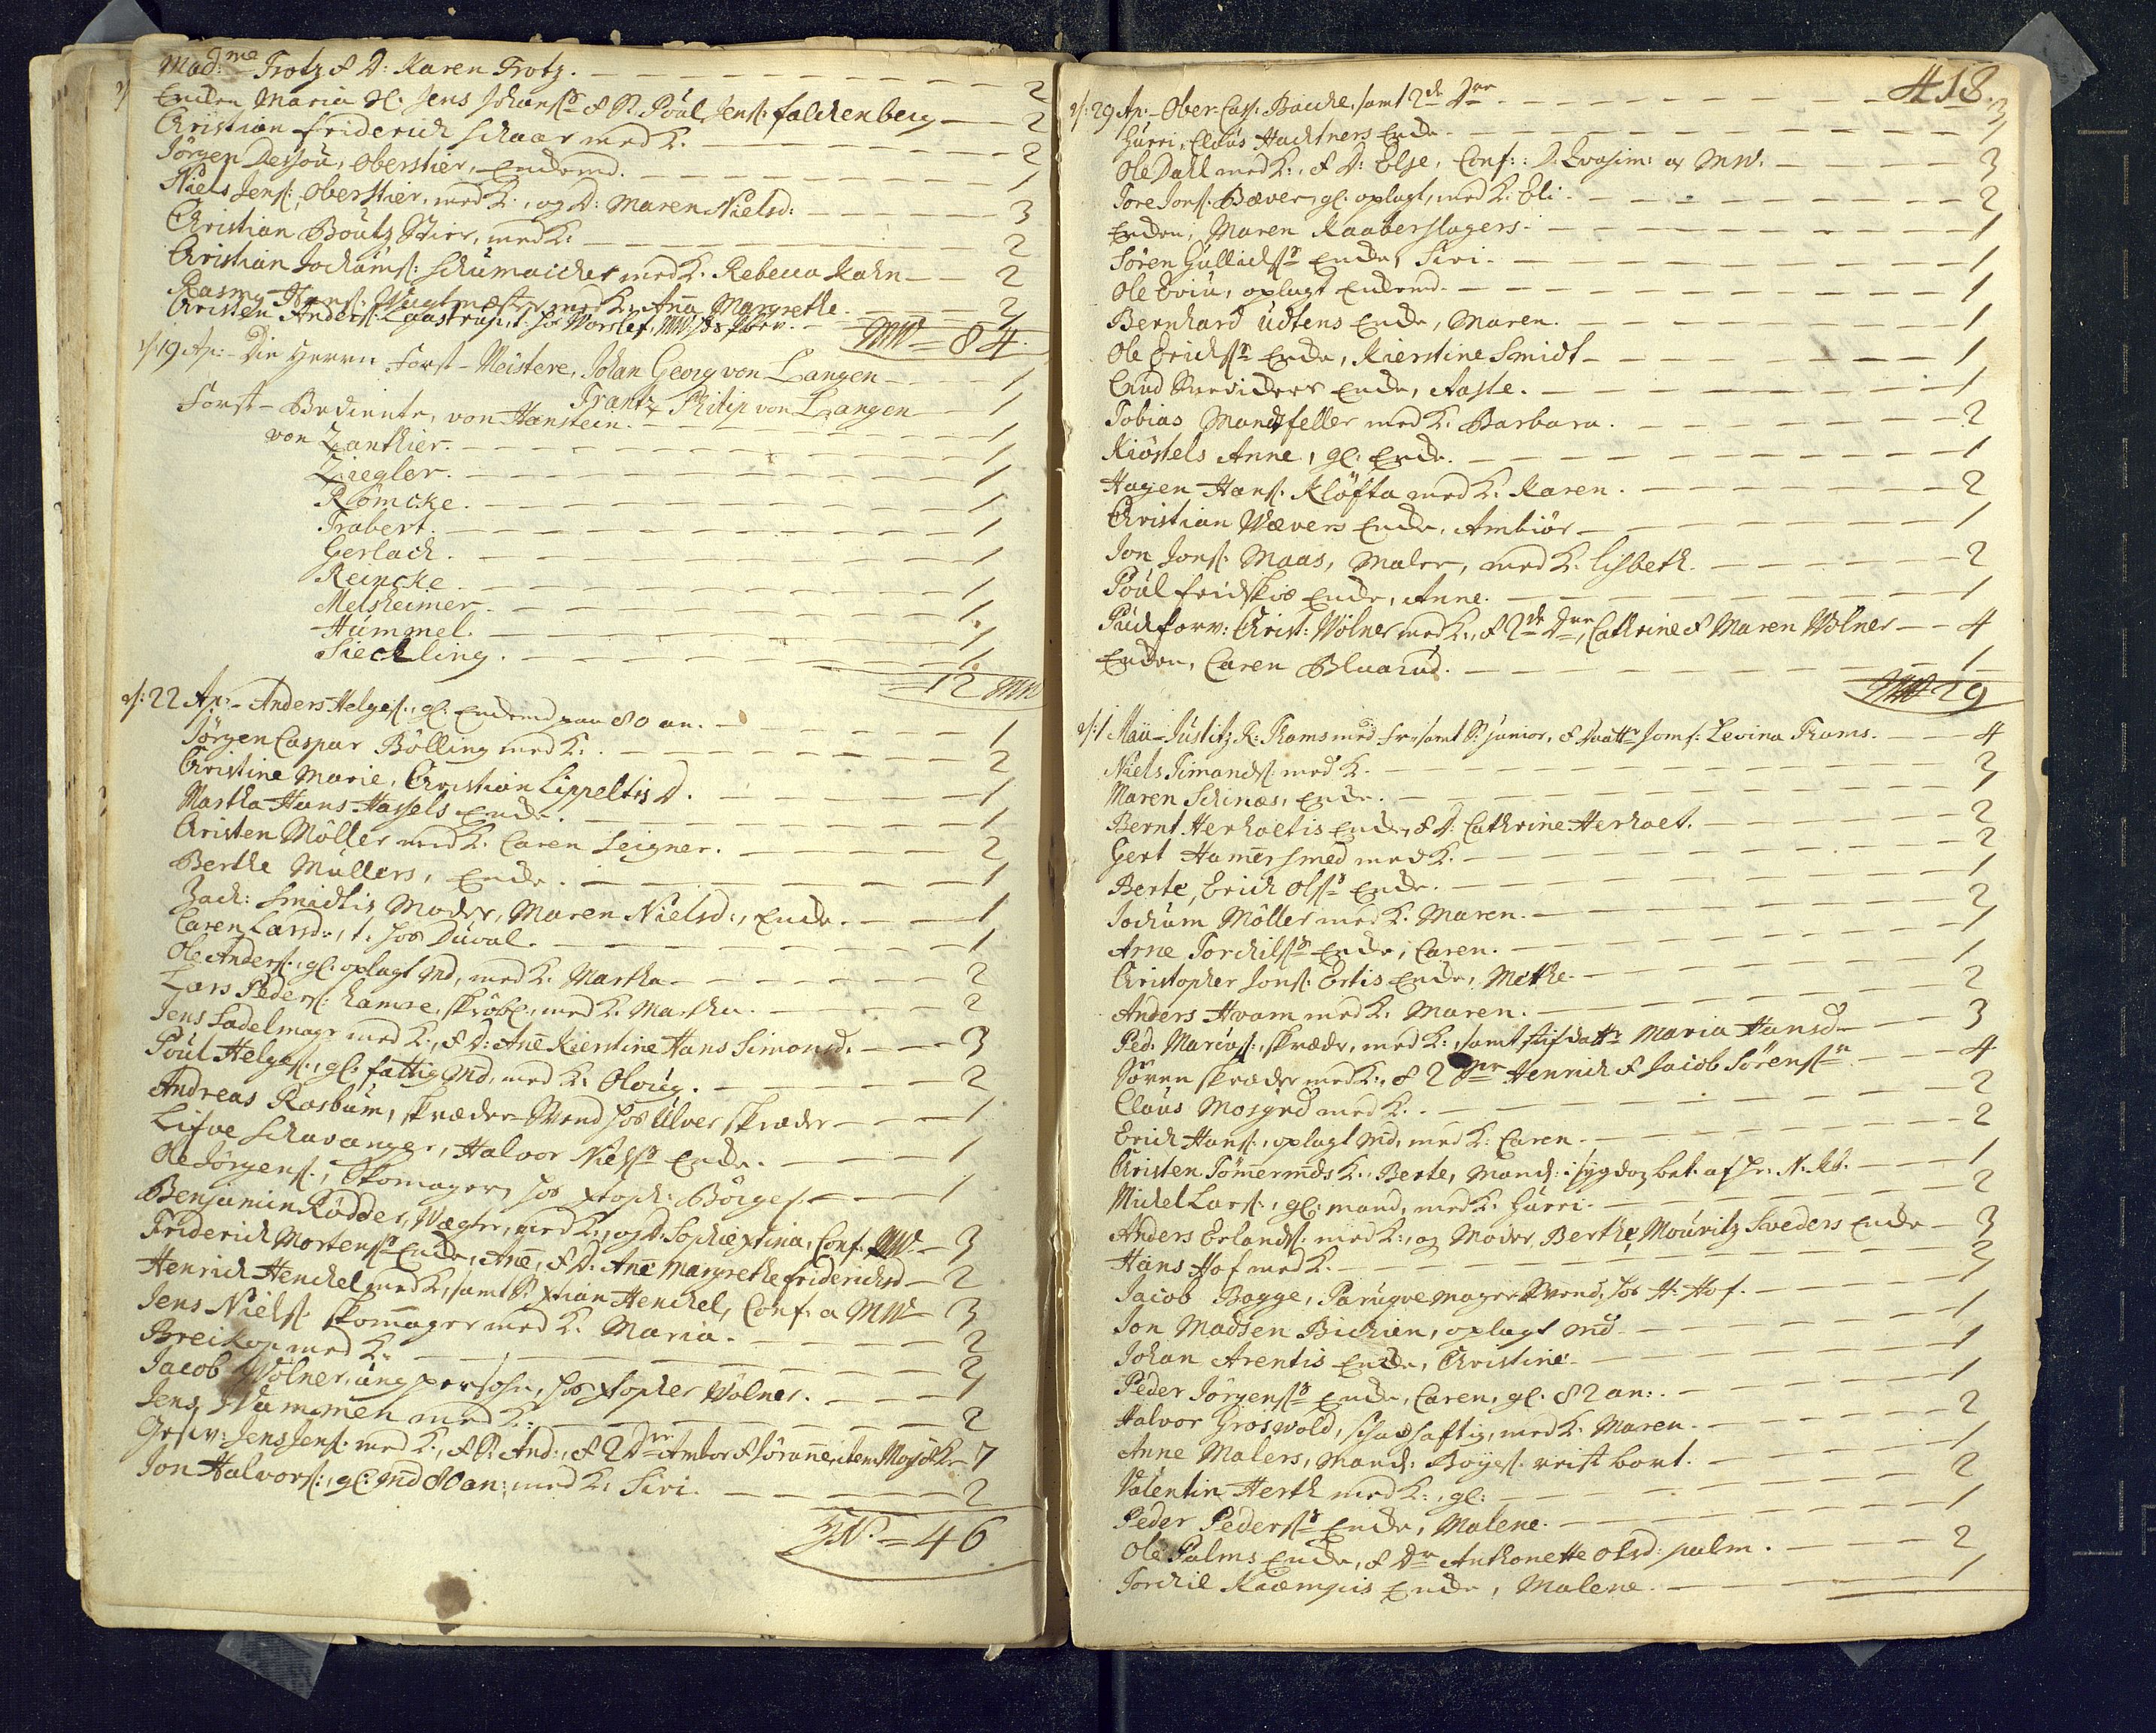 Mad:me Trotz & D: Karen Trotz. 2
Enken Maria Sl. Jens Johans:s & S. Poul Jens: falckenberg 2
Christian Friderich Schaar med K. 2
Jörgen Dessou, Oberstier, Enckemd. 1
Niels Jens:, Oberstier, med K., og D: Maren Nielsd: 3
Christian Boutz Stier, med K. 2
Christian Jochums: Schumaicher med K. Rebecca Kahn 2
Rasmg Hans: Wagtmester med K. Anna Margrethe. 2
Christen Anders: Laastrup, t. hos Worslef,
MW = 84.
19 Ap: Die Herrn Forst-Meistere, Johan Georg von Langen 1
Frantz Philip von Langen 1
Forst-Bediente, von Hanstein. 1
von Zanthier. 1
Ziegler. 1
Römcke. 1
Trabert. 1
Gerlach. 1
Reincke 1
Melsheimer. 1.
Hummel. 1
Sieckling. 1.
= 12 MW
22 Ap: Anders Helges:, gl. Enckemd paa 80 an. 1
Jörgen Caspar Bölling med K. 2
Christine Marie, Christian Lippeltis D. 1
Martha Hans Hassels Encke. 1
Christen Möller med K. Caren Leigner. 2
Berthe Müllers, Encke. 1
Zach: Smidtis Moder, Maren Nielsd:, Encke. 1
Caren Larsd:, t. hos Duval. 1
Ole Anders:, gl. oplagt Md, med K. Martha 2
Lars Peders: hamre, skröbl. med K. Martha. 2
Jens Sadelmagr med K., & D: Ane Kierstine Hans Simonsd. 3
Poul Helges:, gl: fattig Md, med K: Oloug. 2
Andreas Rosbum, skræder Svend hos Ulver skræder 1
Lisve Schavanger, Halvor Niels:s Encke. 1
Ole Jörgens:, Skomager, hos Xtoph: Börges: 1
Benjamin Rödder, Wægter, med K., og D. Sophie Xtina, Conf. MW. 3
Friderich Mortens:s Encke, Ane, & D. Ane Margrethe friderichsd 2
Henrich Henckel med K, samt S. Xtian Henckel, Conf. a MW 3
Jens Niels: Skomager med K. Maria. 2
Breikop med K. 2
Jacob Wölner, ung persohn, hos Xtopher Wölner. 1
Jens Wammen med K. 2
Jens Jens: med K., & S. And:, & 2 Dre Ambor & Joranne, item 7
Jon Halvors:, gl: Md 80 an: med K. Siri. 2
= 46
418.
29 Ap: Ober-Cass: Baiche, samt 2de Dre 3
Gurri, Claus Hachtners Encke. 1
Ole Dahl med K., & D: Else, Conf: MW. 3
Tore Jons: Bæver, gl. oplagt, med K. Eli. 2
Encken, Maren Kaaberslagers. 1
Sören Gullichs:s Encke, Siri. 1
Ole Eviu, oplagt Enckemd. 1
Bernhard Udtens Encke, Maren. 1
Ole Erichs:s Encke, Kierstine Smidt 1
Encke, Aaste. 1
Tobias Mandsfeller med K. Barbara. 2
Kiöstels Anne, gl: Encke. 1
Hagen Hans: Klöfta med K. Karen. 2
Christian Wævers Encke, Ambiör 1
Jon Jons: Maas, Maler, med K. Lisbeth. 2
Poul feidskio Encke, Anne. 1
Pudforv: Christ: Wölner med K., & 2de Dre, Cathrine & Maren Wölner 4
Encken, Caren Bluarud. 1
MW 29
1 Maii Justitz R: Thams med Fr. samt S: junior, & Daattr Jomf: Levina Thams. 4
Niels Timands: med K. 2
Maren Schinas, Encke. 1
Bernt Herhoetis Encke, & D: Cathrine Herhoet. 2
Gert Hamersmed med K. 2
Berte, Erich Ols:s Encke. 1
Jochum Möller med K. Maren. 2
Arne Torchils:s Encke, Caren. 1
Christopher Jons: Ertis Encke, Mette. 1
Anders Hvam med K. Maren. 2
Ped: Marius:, skræder, med K:, samt stifdattr Maria Hansd 3
Sören skræder med K., & 2 Henrich & Jacob Sörens:n 4
Claus Mosgrd med K. 2
Erich Hans:, oplagt Md, med K: Caren. 2
Christen Tömermds K. Berte, Mand: i sygdoz bet. af Hr: N. 1
Michel Lars:, gl: mand, med K. Gurri 2
Anders Erlands: med K., og Moder Berthe, Mouritz Sveders Encke 3
Hans Hof med K. 2
Jacob Bagge, Paruqvemager Svend, hos H: Hof. 1
Jon Madsen Bichien, oplagt Md 1
Johan Arentis Encke, Christine. 1
Peder Jörgens:s Encke, Caren, gl: 82 an: 1
Halvor Groswold, med K. Maren. 2
Anne Malers, mand: Boyes: reist bort. 1
Valentin Herth med K., gl: 2
Peder Peders:s Encke, Malene. 1
Ole Palms Encke, & Dr Anthonette Olsd: palm. 2
Torchil Kiempis Encke, Malene. 1